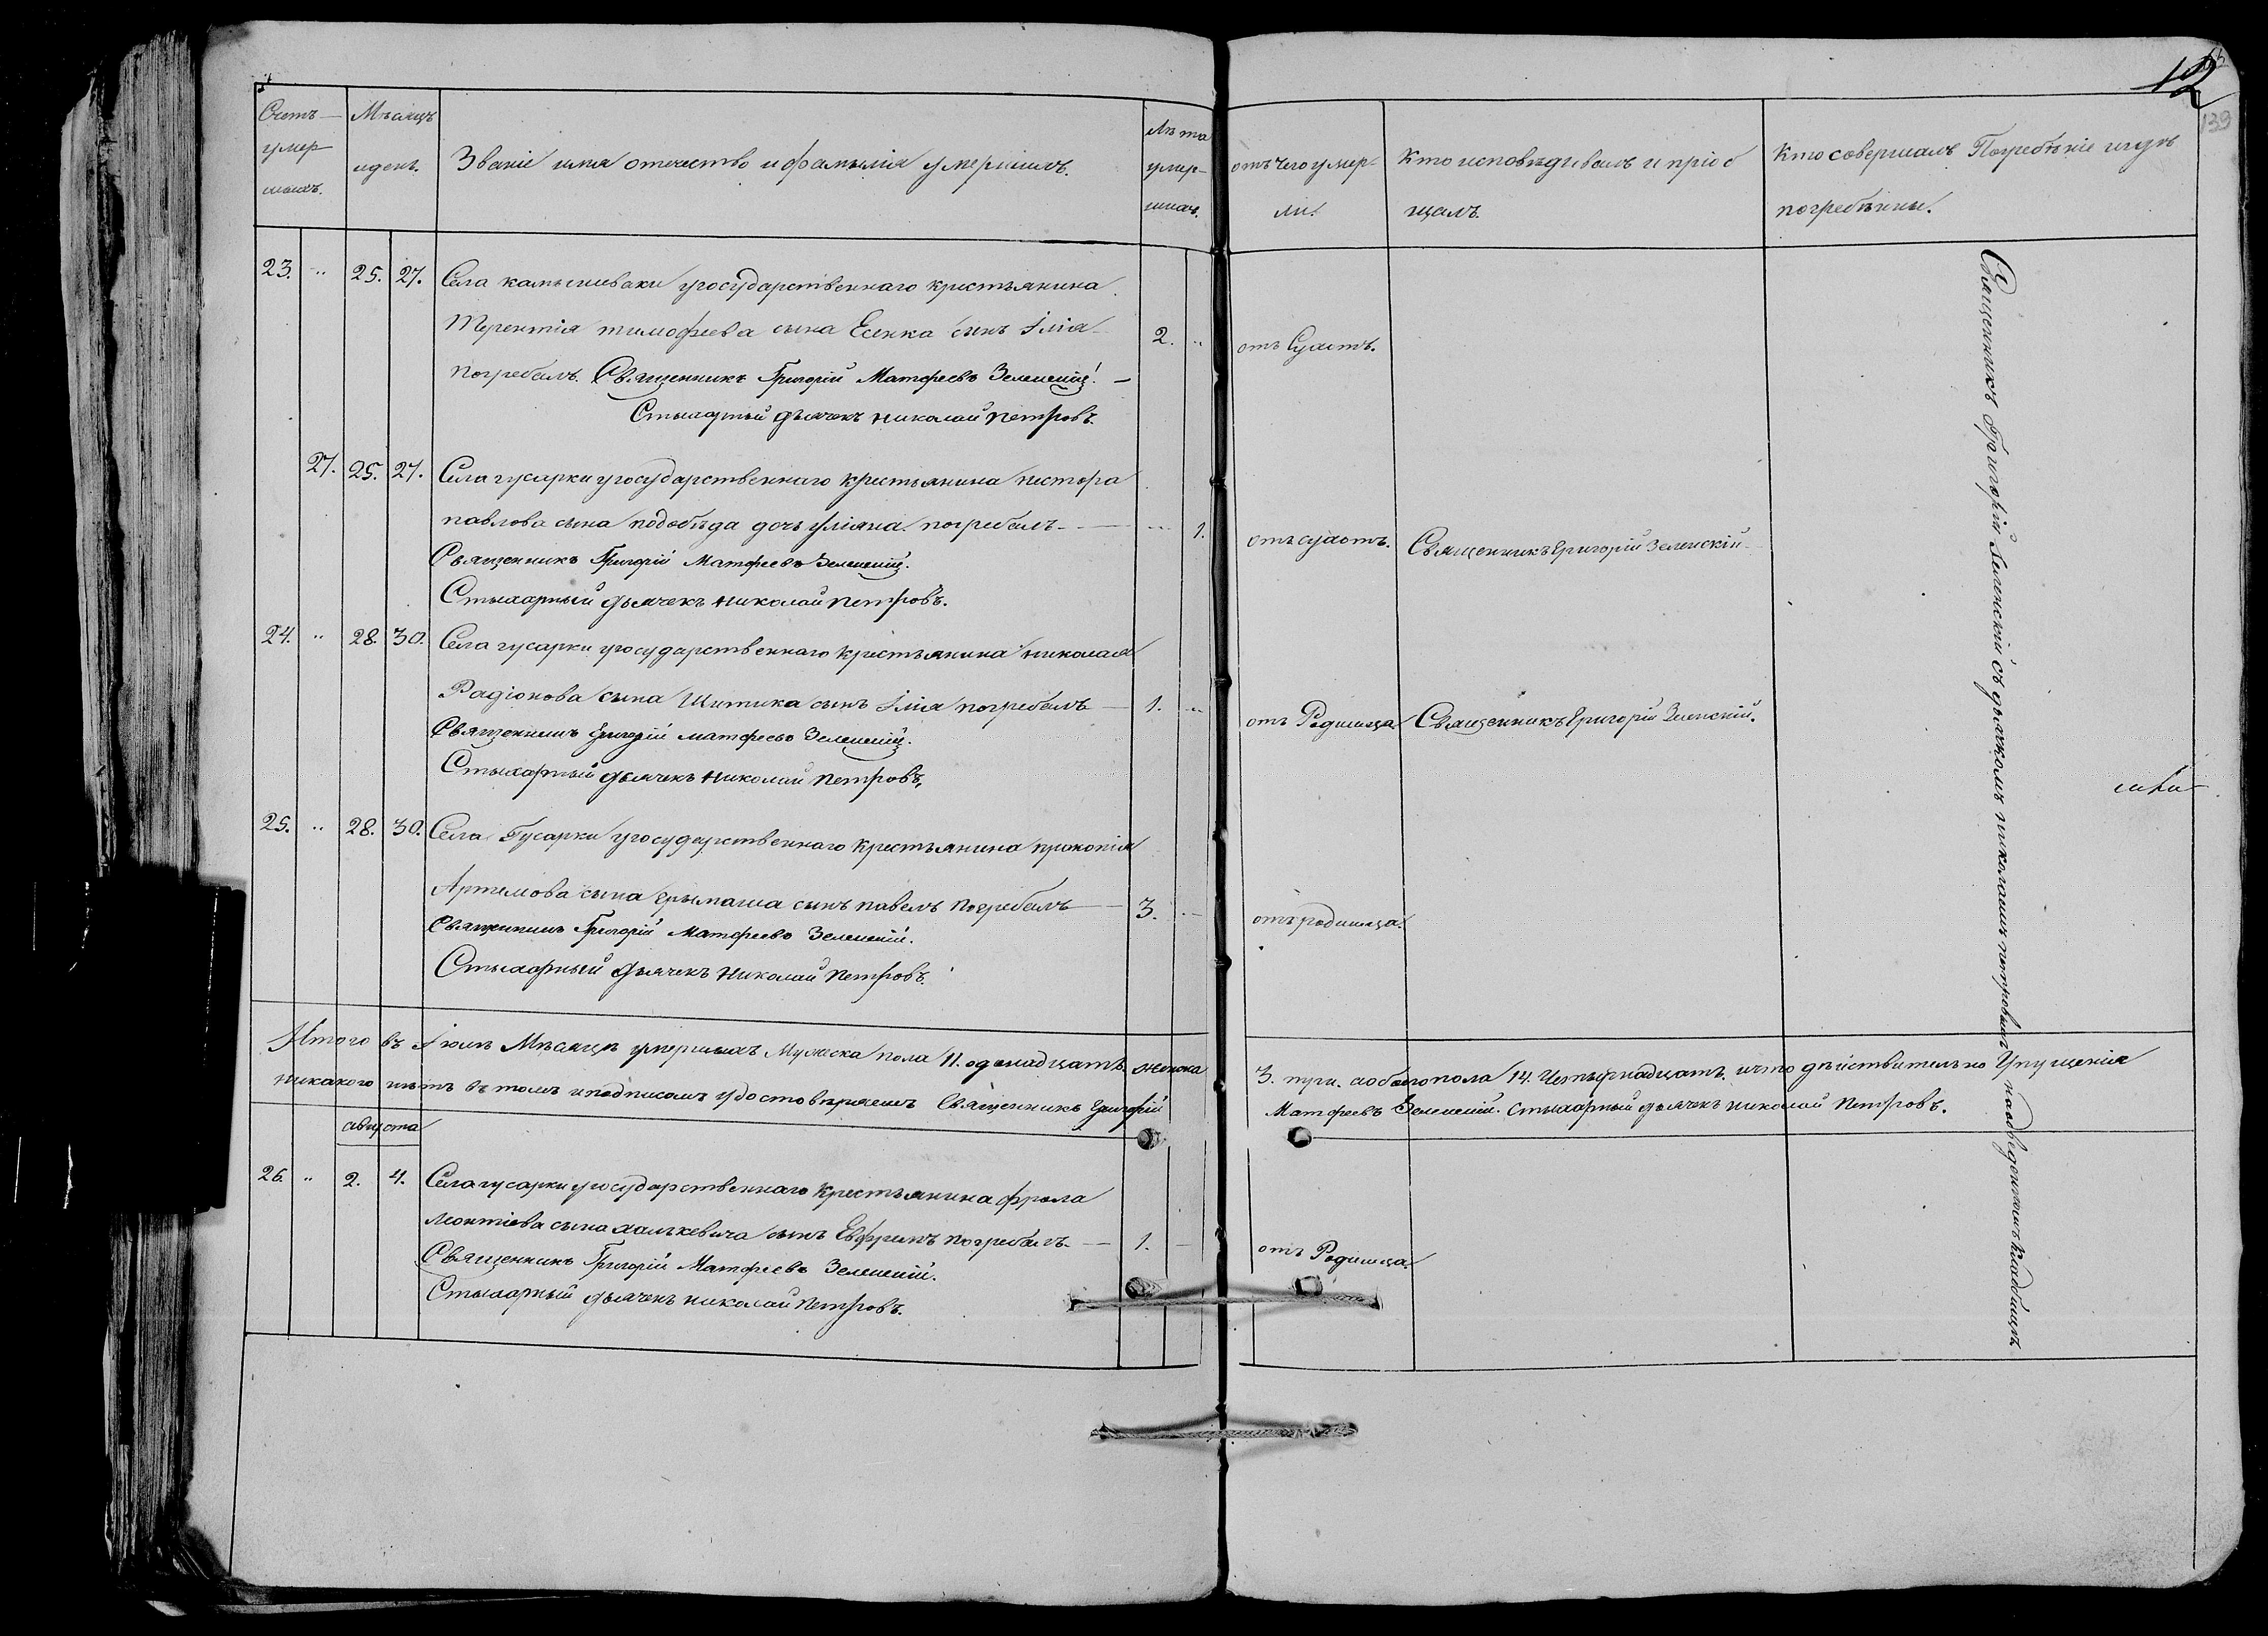 12
139
Счетъ
умер
шихъ.
Мѣсяцъ
и день.
Званіе имя отечество и фамилія умершихъ.
Лѣта
умер-
шихъ.
отъ чего умер-
ли.
Кто исповѣдывалъ и пріоб
щалъ.
Кто совершалъ Погребѣніе и гдѣ
погребѣнны.
23. „ 25. 27. Села камышеваки у государственнаго крестьянина
Терентія тимофеева сына Есенка сынъ Іліа
2. „ отъ Сухотъ.
погребалъ. Священникъ Григорій Матфеевъ Зеленскій.
Стыхарный дьячекъ николай Петровъ.
27. 25. 27. Села гусарки у государственнаго крестьянина нестора
павлова сына подобѣда дочь уліяна погребалъ
1. отъ сухотъ. Священникъ Григорій Зеленскій
Священникъ Григорій Матфеевъ Зеленскій.
Стыхарный дьячекъ николай Петровъ.
24. „ 28. 30. Села гусарки у государственнаго крестьянина николая
Радіонова сына Шитика сынъ Іліа погребалъ
1. „ отъ Родимца. Священникъ Григорій Зеленскій.
Священникъ Григорій матфеевъ Зеленскій.
Стыхарный дьячекъ николай Петровъ.
25. „ 28. 30. Села Гусарки у государственнаго крестьянина прокопія
Артемова сына сынъ павелъ погребалъ
3. отъ родимца.
Священникъ Григорій Матфеевъ Зеленскій.
Стыхарный дьячекъ николай Петровъ.
Итого въ Іюлѣ Мѣсяцѣ умершихъ Мужеска пола 11. одинадцать. женска
3. три. а обоего пола 14. Четырнадцать. и что дѣйствительно Упущенія
никакого нѣтъ въ томъ и подписомъ удостовѣряемъ Священникъ Григорій
Матфеевъ Зеленскій. стыхарный дьячекъ николай Петровъ.
августа
26. „ 2. 4. Села гусарки у государственнаго крестьянина фрола
леонтіева сына халькевича сынъ Ефремъ погребалъ
1. отъ Родимца.
Священникъ Григорій Матфеевъ Зеленскій.
Стыхарный дьячекъ николай Петровъ.
Священникъ Григорій Зеленскій съ дьячкомъ николаемъ петровымъ на кладбищѣ